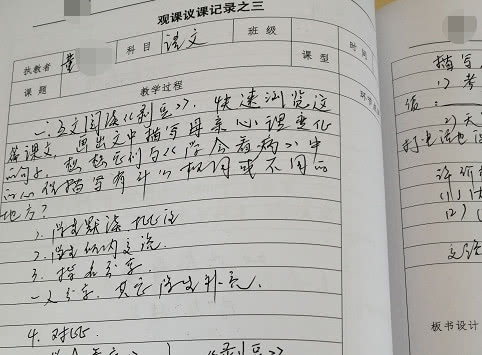 观课议课记录之三
执教者 董 科目 语文 班级 时间
课题 课型
教学过程
一、互文阅读《剥豆》，快速浏览这
篇课文，思出文中描写母亲心理变化
的句子，想想它们与《学会看病》中
的心理描写有什么相同或不同的
地方？
1. 学生默读批注
2. 学生组内交流
3. 指名分享
一人分享，其它学生补充。
4. 对比
《剥豆》
描写
1) 考
2) 天
板书设计